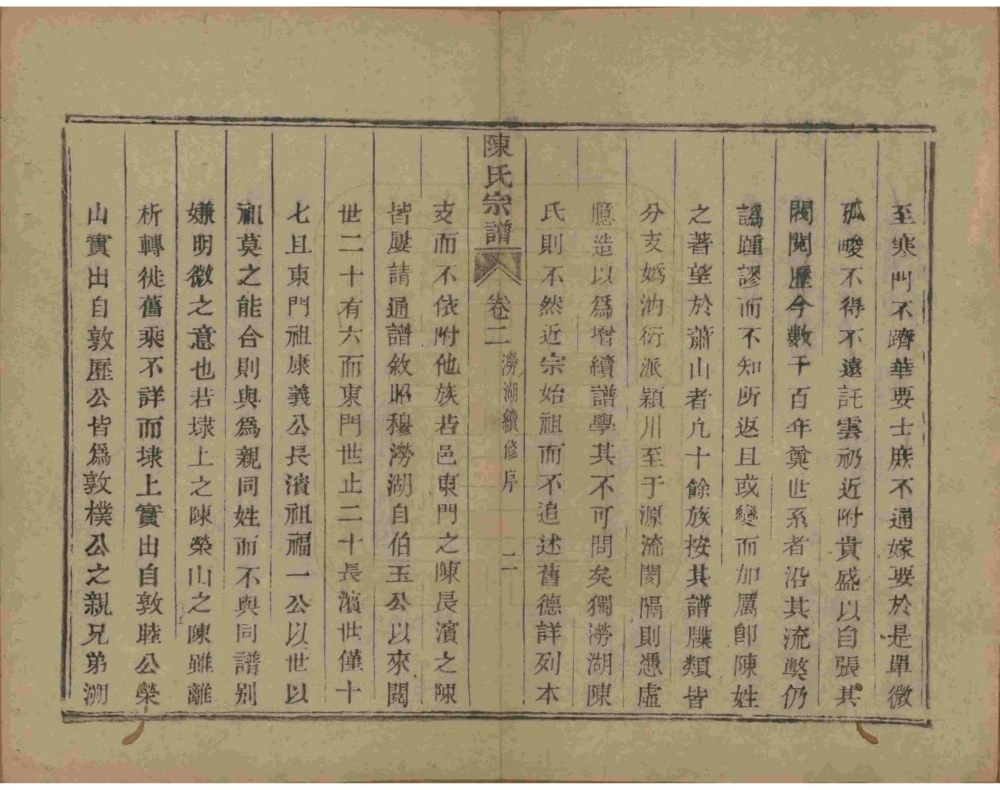 至寒門不躋華要士庶不通嫁娶於是單微
孤畯不得不遠託雲礽近附貴盛以自張其
閥閱歷今數千百年奠世系者沿其流弊仍
譌踵謬而不知所返且或變而加厲卽陳姓
之著望於蕭山者凡十餘族按其譜牒類皆
分支嬀汭衍派潁川至于源流闊隔則憑虛
臆造以爲增續譜學其不可問矣獨澇湖陳
氏則不然近宗始祖而不追述舊德詳列本
陳氏宗譜 卷二 澇湖續修序 二
支而不依附他族若邑東門之陳長濱之陳
皆屢請通譜敘昭穆澇湖自伯玉公以來閱
世二十有六而東門世止二十長濱世僅十
七且東門祖康義公長濱祖福一公以世以
祖莫之能合則與爲親同姓而不與同譜別
嫌明微之意也若埭上之陳榮山之陳雖離
析轉徙舊乘不詳而埭上實出自敦睦公榮
山實出自敦歷公皆爲敦樸公之親兄弟溯